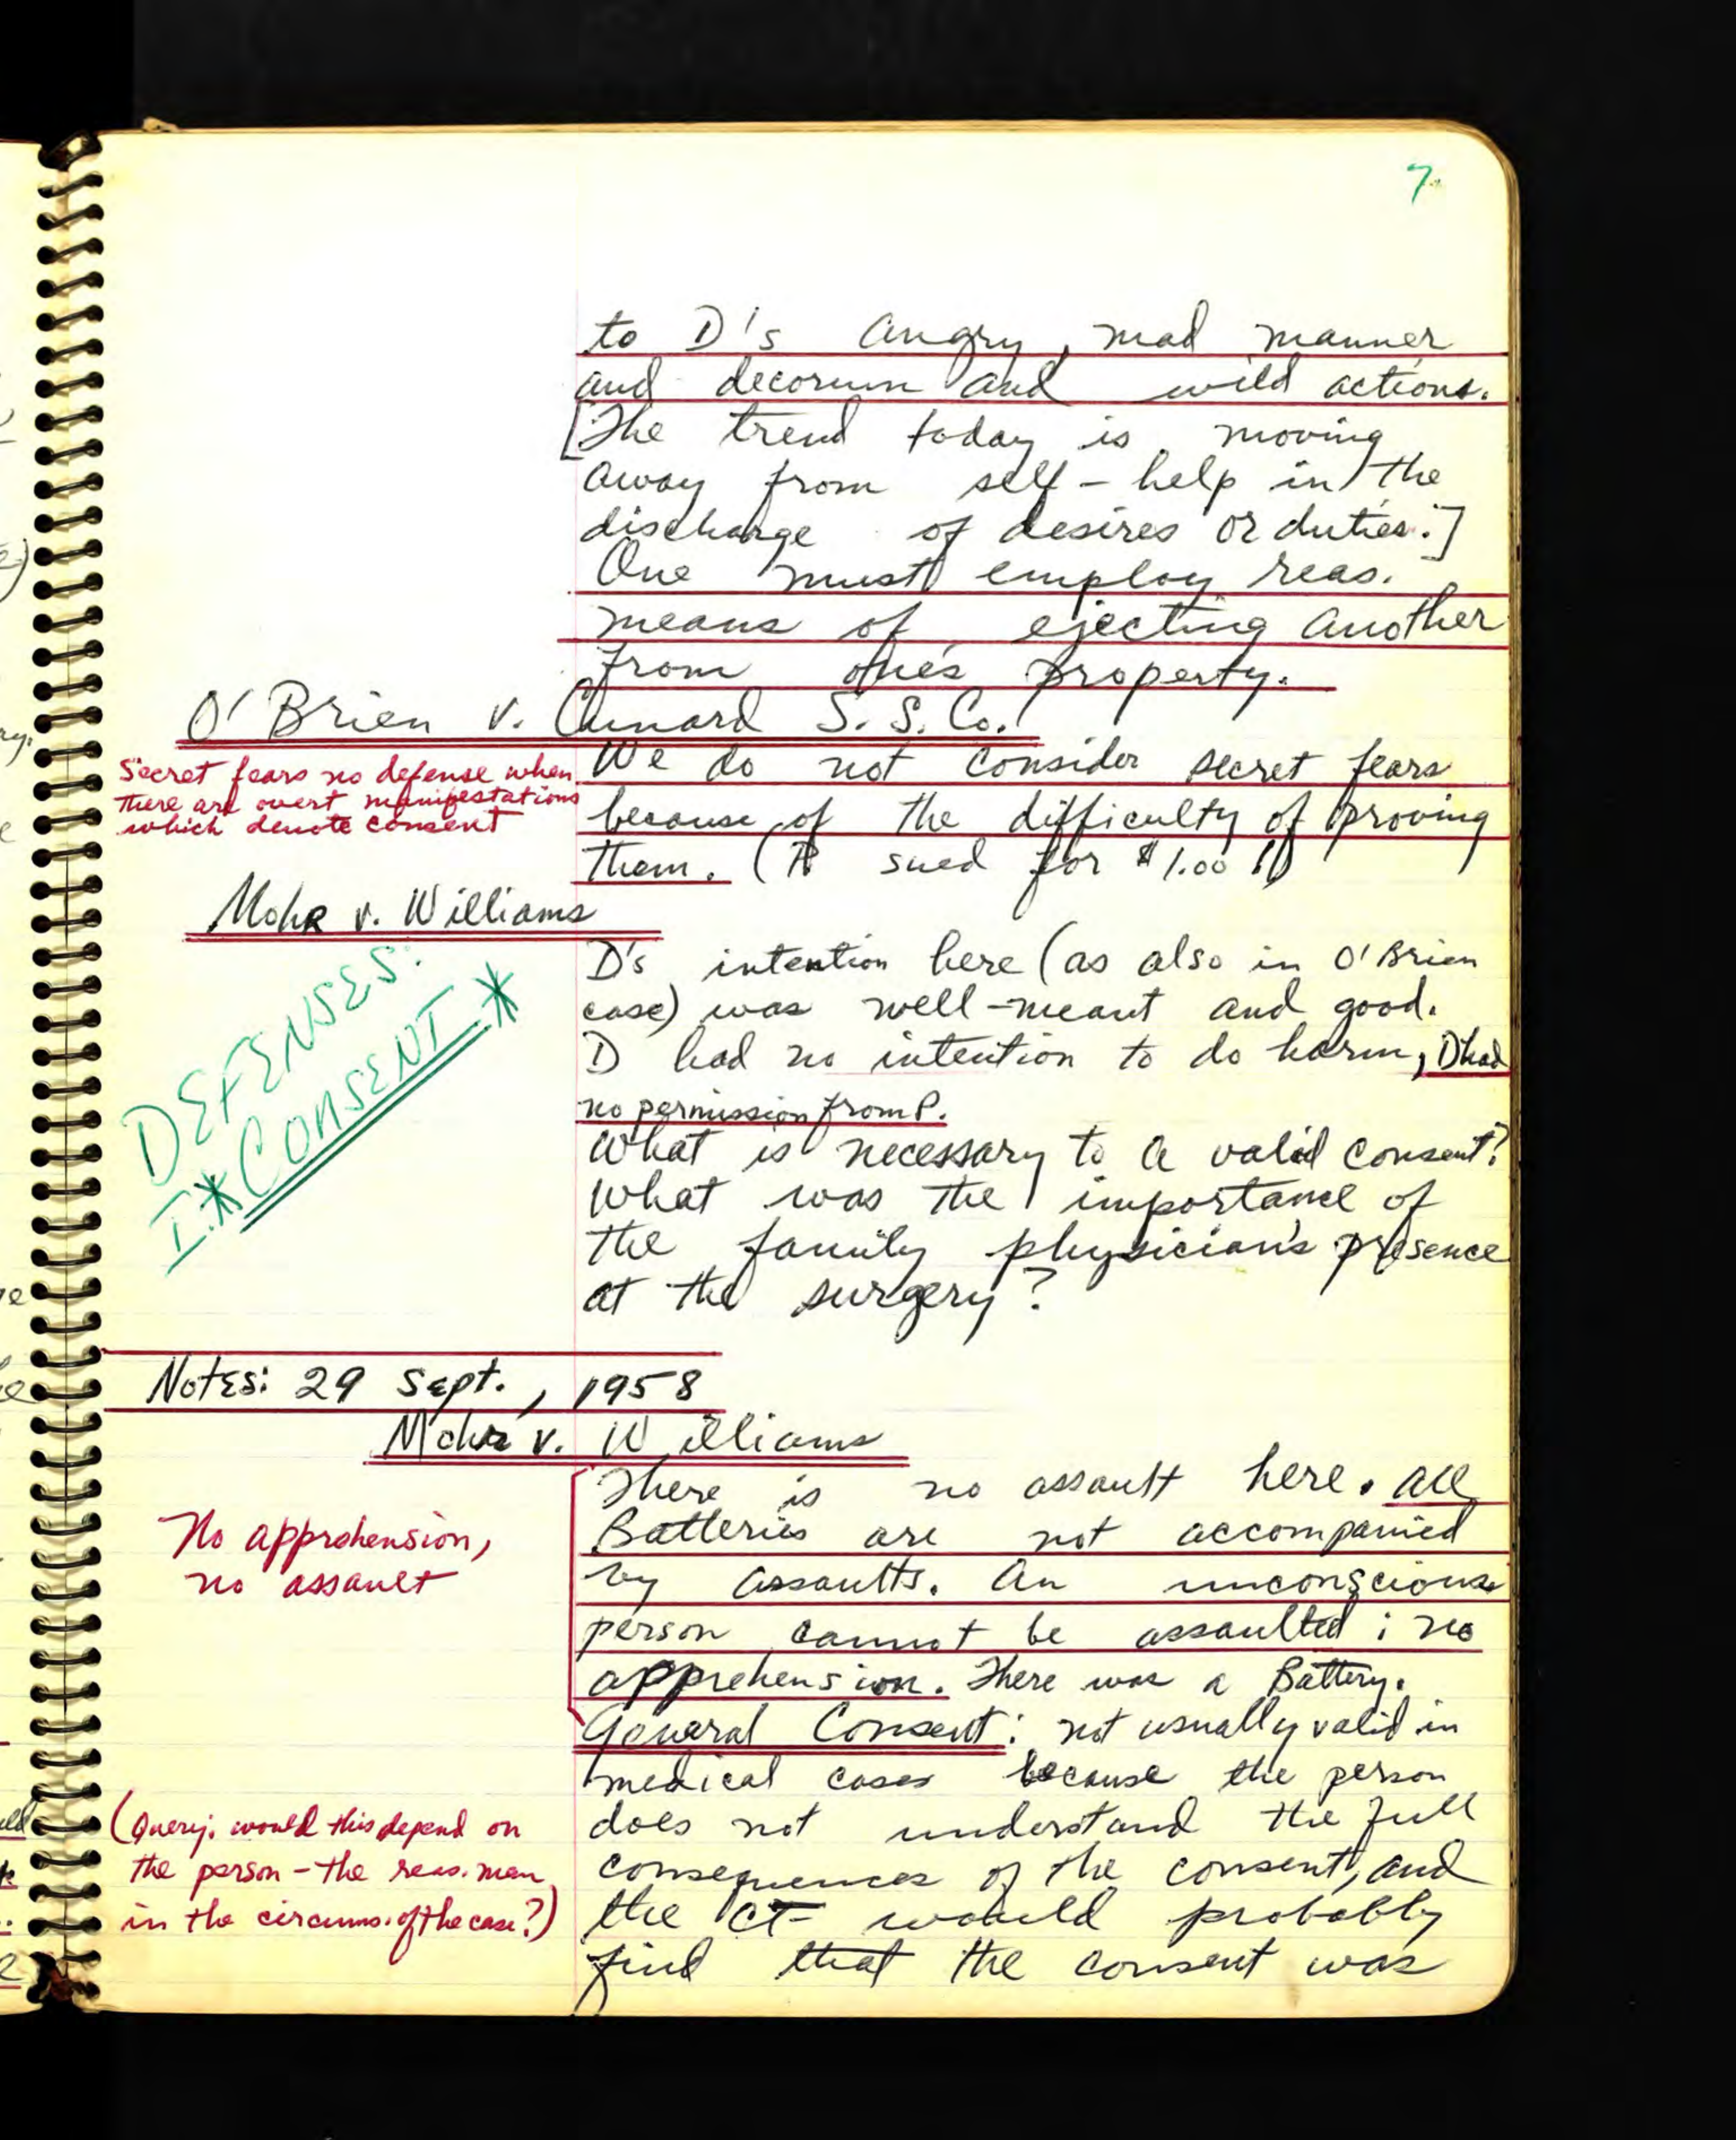 7.
to D's angry, mad manner
and decorum and wild actions.
[The trend today is moving
away from self-help in the
discharge of desires or duties.]
One must employ reas.
means of ejecting another
from one's property.
O'Brien v. Cunard S. S. Co.
Secret fears no defense when
there are overt manifestations
which denote consent
We do not consider secret fears
because of the difficulty of proving
them. (π sued for $1.00 !)
Mohr v. Williams
DEFENSES:
I.*CONSENT*
D's intention here (as also in O'Brien
case) was well-meant and good.
D had no intention to do harm, D had
no permission from P.
What is necessary to a valid consent?
What was the importance of
the family physician's presence
at the surgery?
Notes: 29 Sept., 1958
Mohr v. Williams
No apprehension,
no assault
There is no assault here. All
Batteries are not accompanied
by assaults. An unconscious
person cannot be assaulted; no
apprehension. There was a Battery.
General Consent: not usually valid in
medical cases because the person
does not understand the full
consequences of the consent, and
the CT would probably
find that the consent was
(Query: would this depend on
the person - the reas. man
in the circums. of the case?)